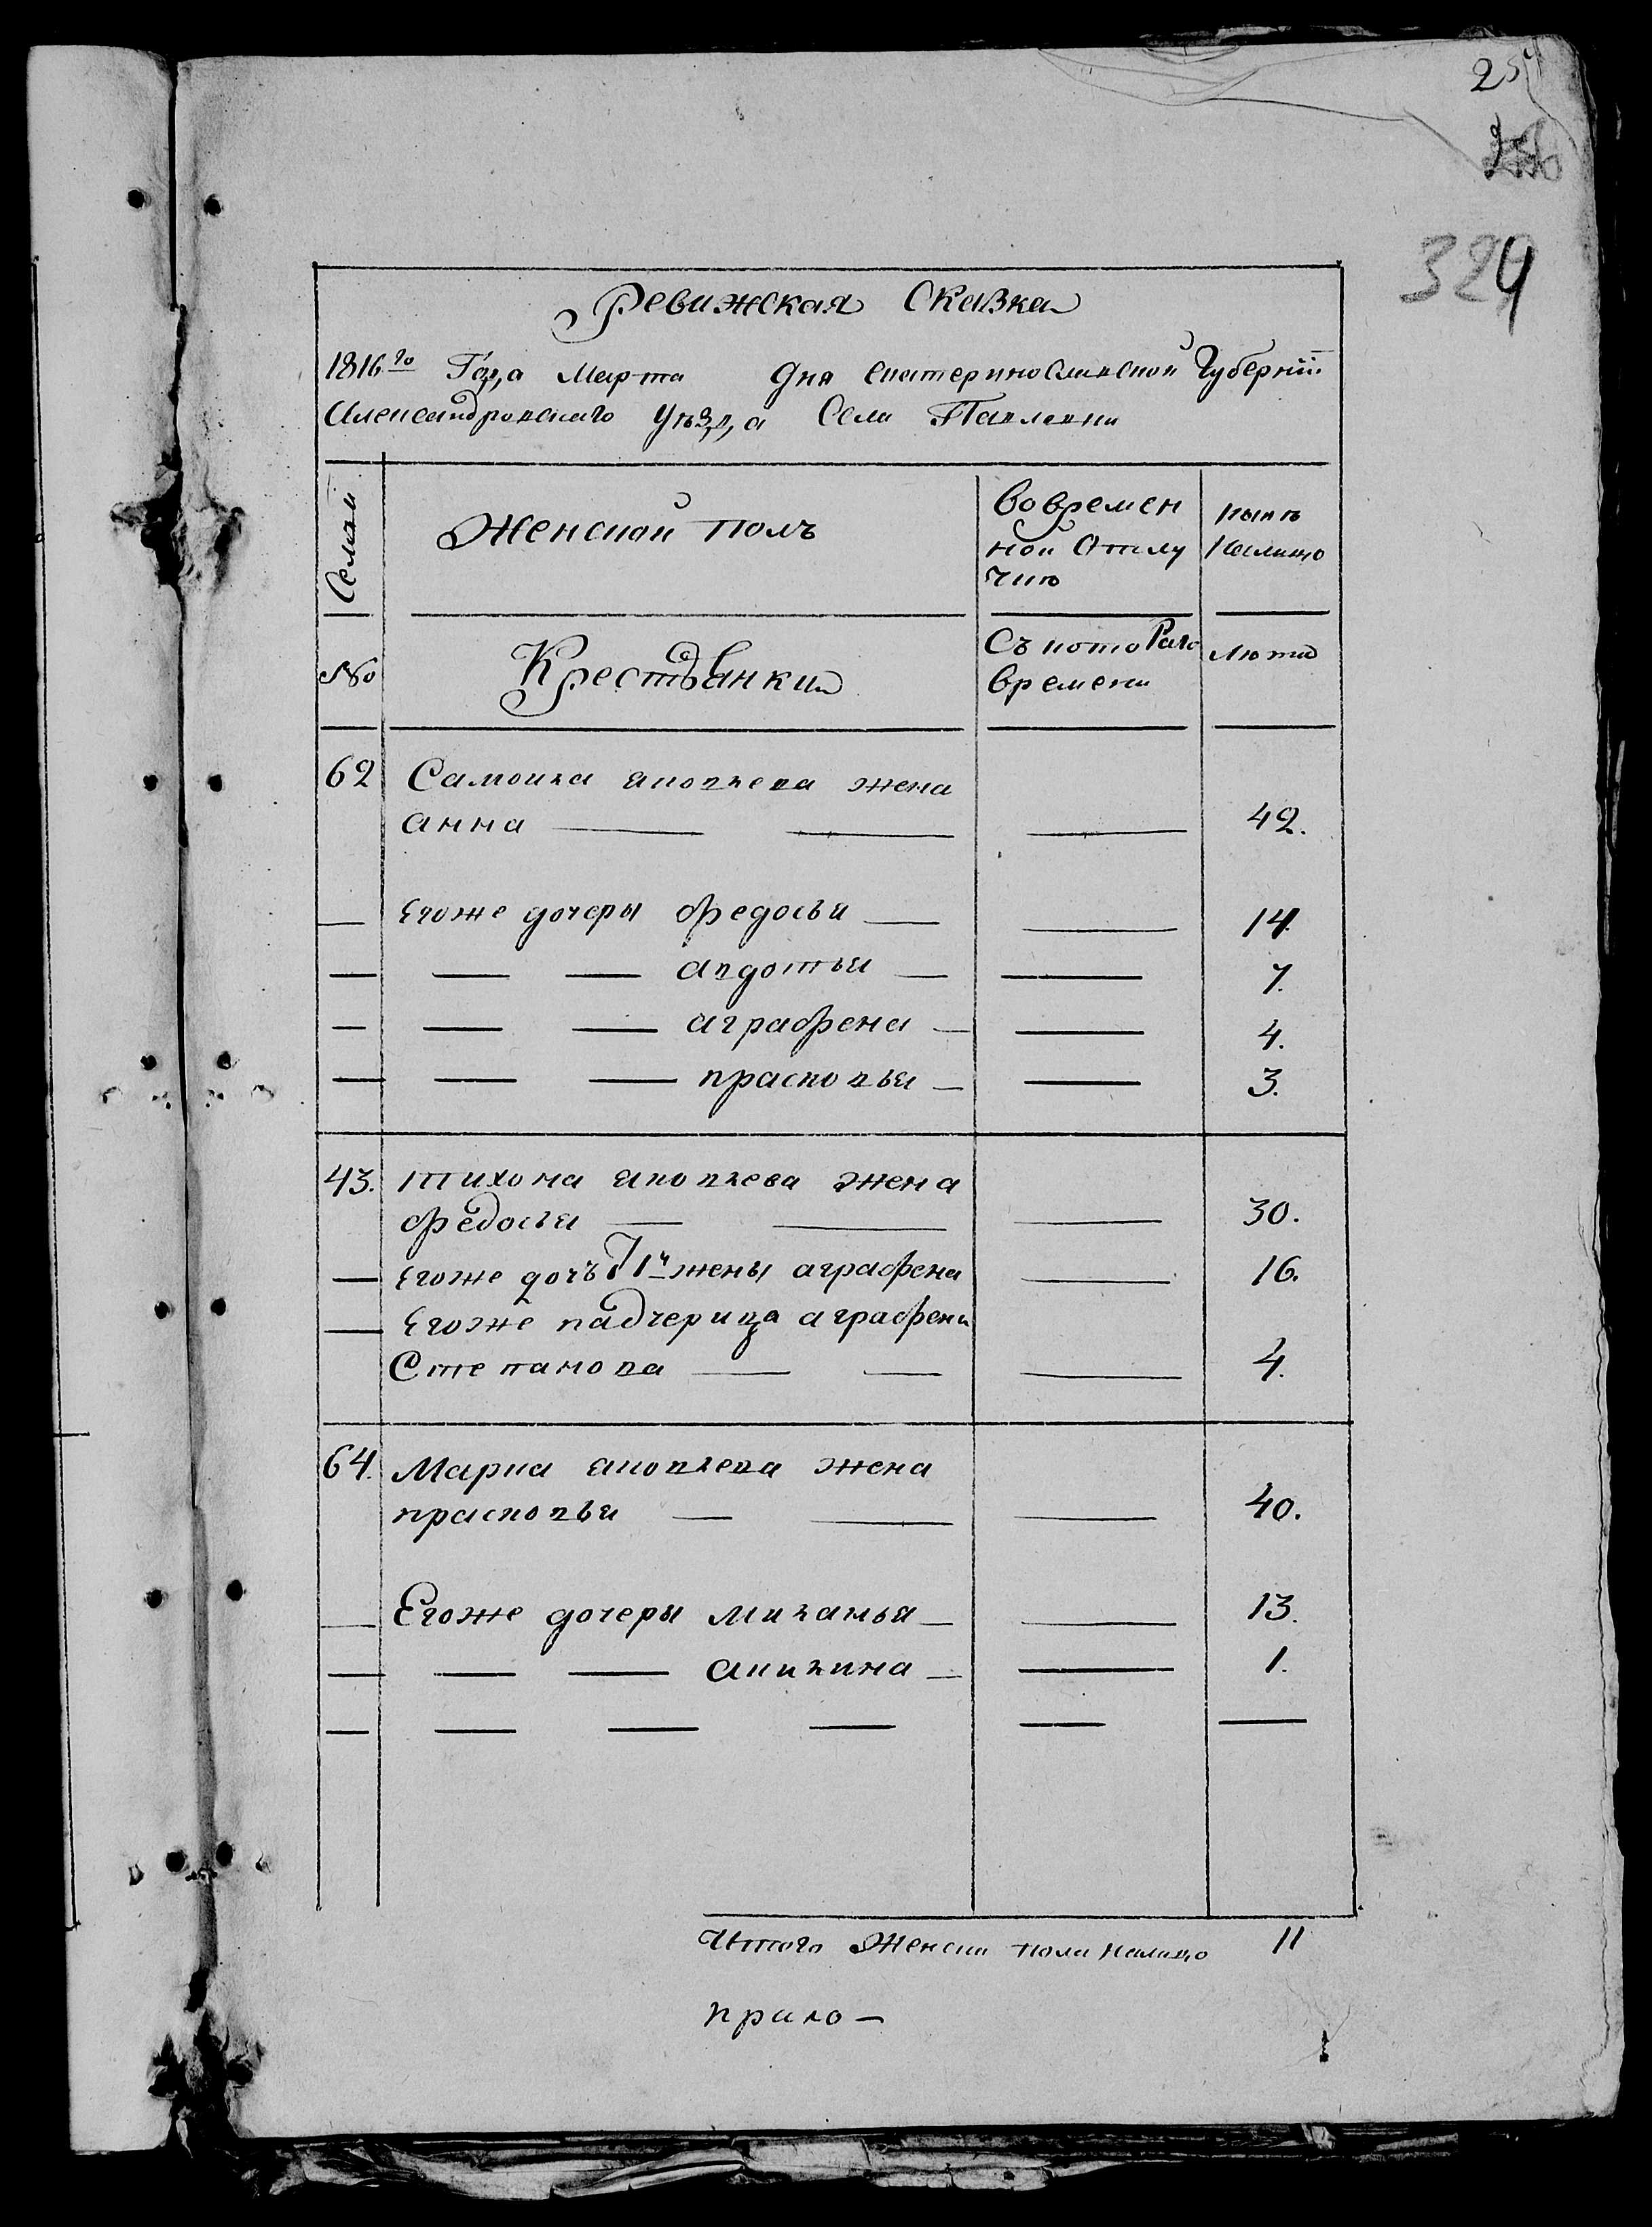 25
329
Ревижская Сказка
1816го Года Марта дня екатеринославской Губернiи
Александровскаго Уѣзда Села Павловки
Семьи
Женской полъ
вовремен
ной Отлу
чию
нынѣ
налицо
№
Крестьянки
Съ котоРаго
времени
лѣта
62 Самойла яковлева жена
анна 42.
Егоже дочеры федосья 14.
авдотья 7.
аграфена 4.
прасковья 3.
43. тихона яковлева жена
федосья 30.
Егоже дочь 1й жены аграфена 16.
Егоже падчерица аграфена
Степанова 4.
64. Марка яковлева жена
прасковья 40.
Егоже дочеры миланья 13.
акилина 1.
Итого Женска пола налицо 11